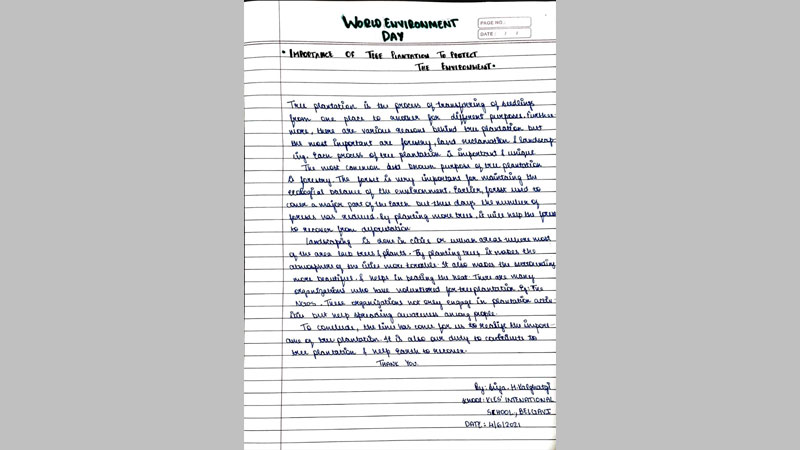 WORLD ENVIRONMENT
DAY
PAGE NO.:
DATE: / /
• IMPORTANCE OF TREE PLANTATION TO PROTECT
THE ENVIRONMENT.
Tree plantation is the process of transferring of seedlings
from one place to another for different purposes. Further
more, there are various reasons behind tree plantation but
the most important are forestry, land reclamation & landscap
ing. Each process of tree plantation is important & unique
The most common and known purpose of tree plantation
is forestry. The forest is very important for maintaining the
ecological balance of the environment. Earlier, forest used to
cover a major part of the Earth but these days the number of
forests has reduced. By planting more trees, it will help the forest
to recover from deforestation
Landscaping is done in cities or urban areas where most
of the area lack trees & plants. By planting trees it makes the
atmosphere of the cities more bearable. It also makes the surrounding
more beautiful & helps in beating the heat. There are many
organizations who have volunteered for tree plantation Eg: The
NGOS. These organizations not only engage in plantation activi
ties but help spreading awareness among people.
To conclude, the time has come for us to realize the import
ance of tree plantation. It is also our duty to contribute to
tree plantation & help Earth to recover.
THANK YOU.
By: H.
SCHOOL: KLES' INTENATIONAL
SCHOOL, BELGAVI
DATE: 4/6/2021